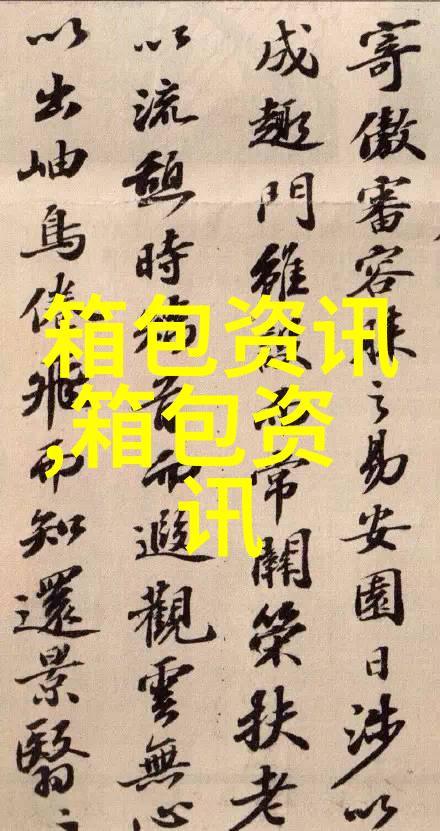 寄傲審容膝之易安園日涉以
成趣門雖設而常關策扶老
以流憩時矯首而遐觀雲無心
以出岫鳥倦飛而知還景翳
箱包资讯
,箱包资
讯